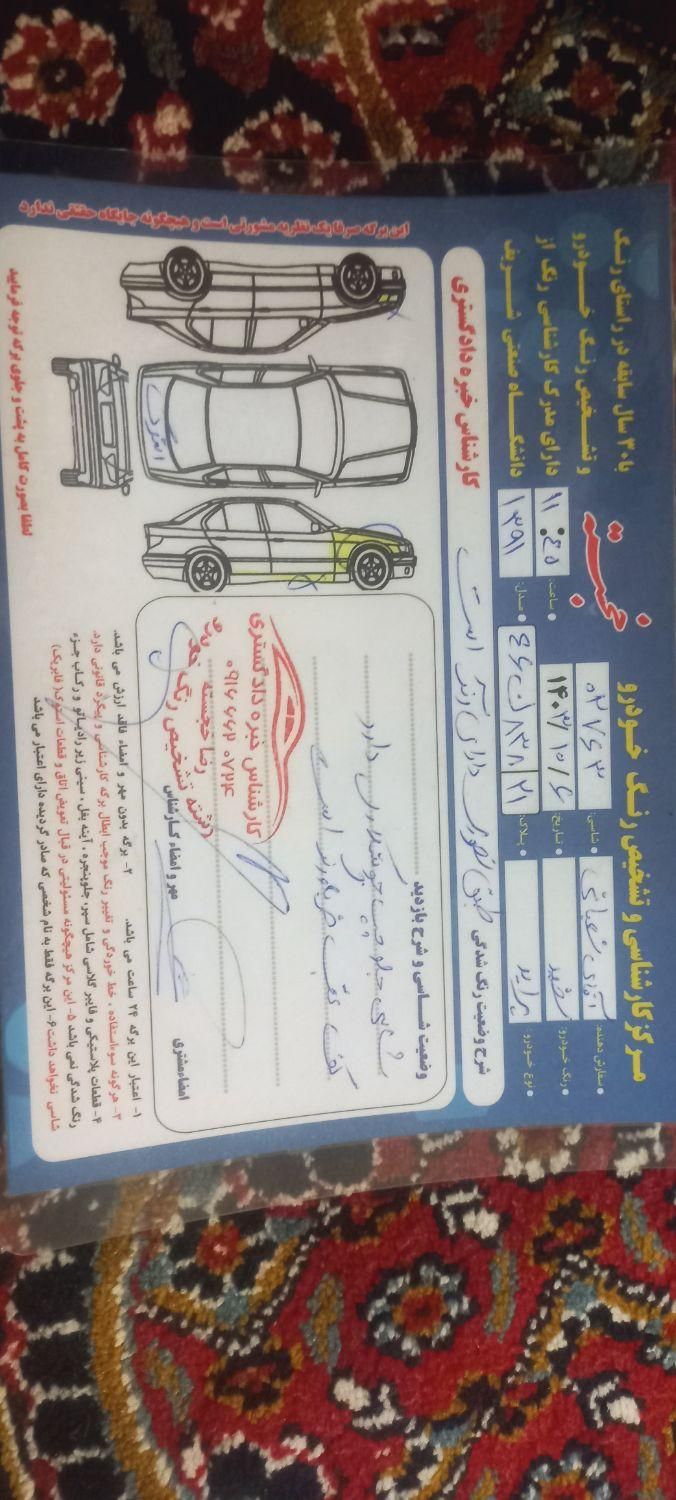 مرکز کارشناسی و تشخیص رنگ خودرو
خجسته
با ۳۰ سال سابقه در راستای رنگ
و تشخیص رنگ خودرو
دارای مدرک کارشناسی رنگ از
دانشگاه صنعتی شریف
سفارش دهنده: آقای
شاسی: ۰۲۷۶۳
رنگ خودرو: سفید
تاریخ: ۱۴۰۳/۱۰/۶
ساعت: ۱۱:۴۵
نوع خودرو: پراید
پلاک: ۴۶ ل ۸۳۸ ۲۱
مدل: ۱۳۹۱
شرح وضعیت رنگ شدگی طبق تصویر دارای رنگ است
کارشناس خبره دادگستری
وضعیت شاسی و شرح بازدید
شاسی جلو چپ جوشکاری دارد
کف عقب است
کارشناس خبره دادگستری
۰۹۱۶ ۶۶۲ ۰۷۲۴
رضا خجسته
رشته تشخیص رنگ
مهر و امضاء کارشناس
امضاء مشتری
۱- اعتبار این برگه ۲۴ ساعت می باشد.
۲- برگه بدون مهر و امضاء فاقد ارزش می باشد.
۳- هرگونه سوءاستفاده، خط خوردگی و تغییر رنگ موجب ابطال برگه کارشناسی و پیگرد قانونی دارد.
۴- قطعات پلاستیکی و فایبر گلاسی شامل سپر، جلوپنجره، آینه بغل، سینی زیر رادیاتور و رکاب جزء
رنگ شدگی نمی باشد ۵- این مرکز هیچگونه مسئولیتی در قبال تعویض اتاق و قطعات استوک (فابریک)
شاسی نخواهد داشت ۶- این برگه فقط به نام شخصی که صادر گردیده دارای اعتبار می باشد
این برگه صرفا یک نظریه مشورتی است و هیچگونه جایگاه حقوقی ندارد
لطفا بصورت کامل به پشت و جلوی برگه توجه فرمایید